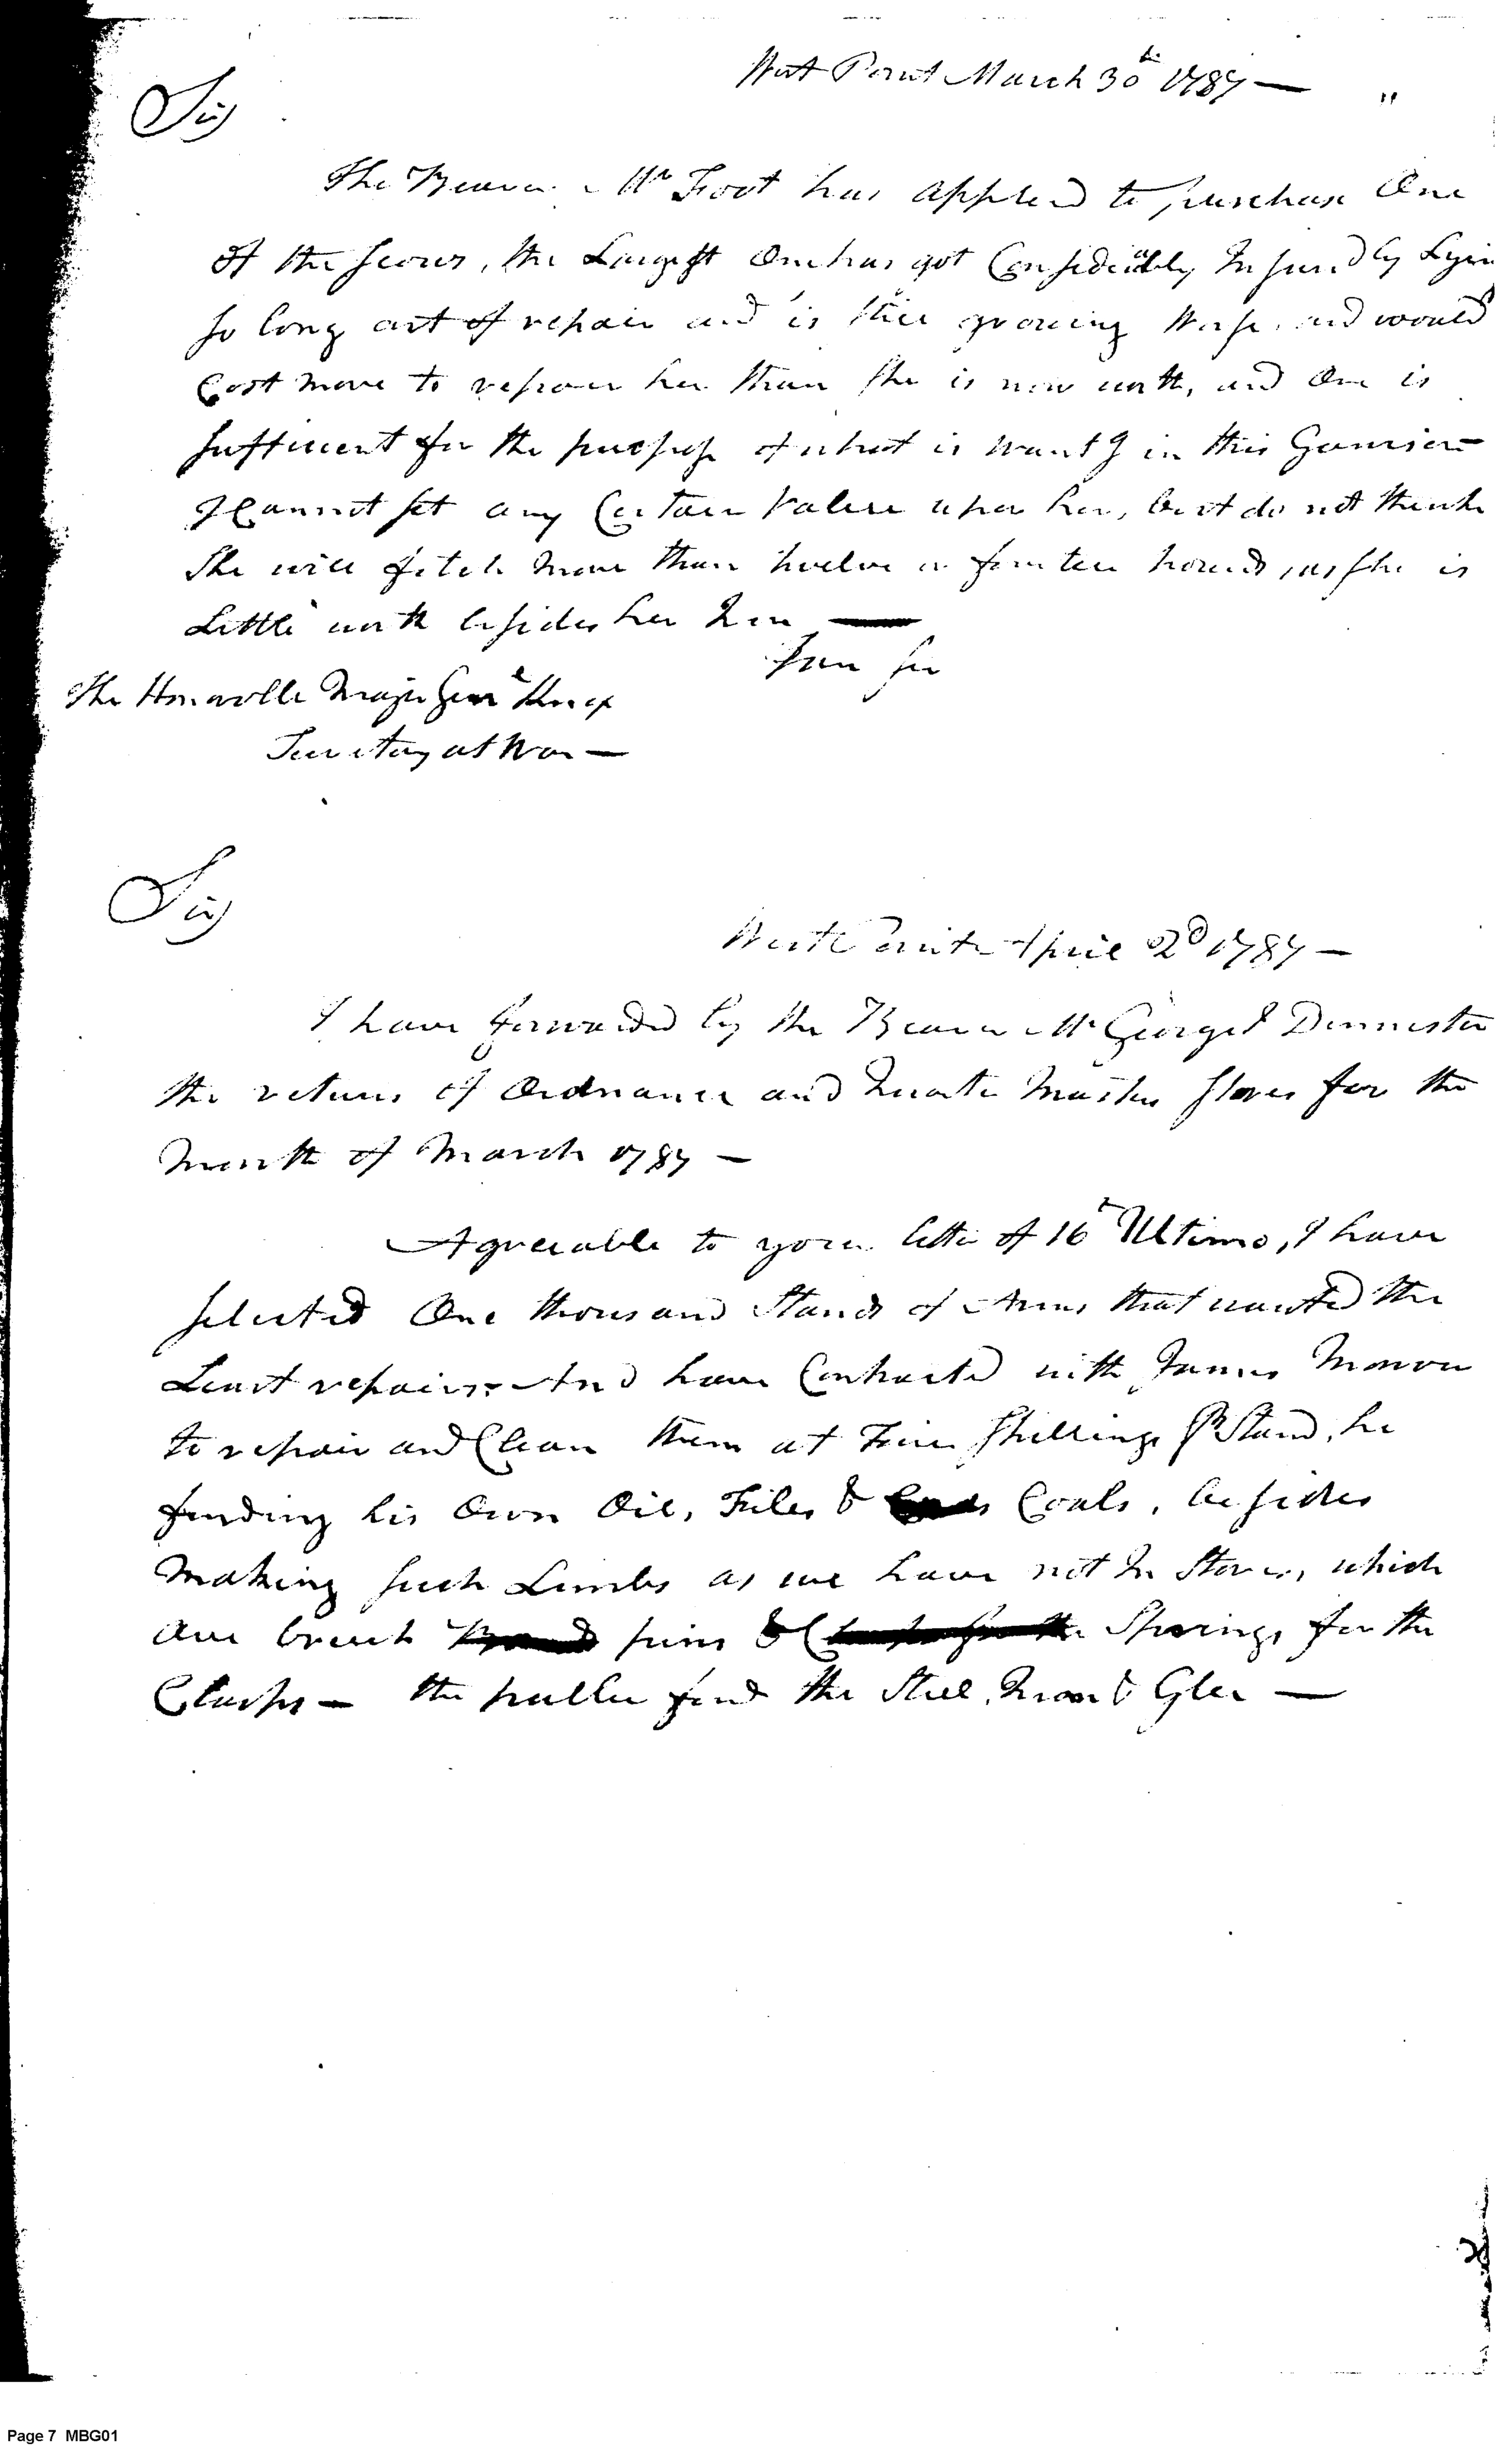 West Point March 30th 1787 — "
Sir
The Bearer Mr Foot has applied to purchase One
of the scows, the Largest One has got Considerably Injured by Lyin
so long out of repair and is still growing worse, and would
Cost more to repair her than she is now worth, and One is
sufficient for the purpose of what is wantg in this Garrison
I Cannot set any Certain Value upon her, but do not think
She will fetch more than twelve or fourteen pounds, as she is
Little worth besides her Iron —
I am Sir
The Honorable Major Genl Knox
Secretary at War —
Sir
West Point April 2d 1787 —
I have forwarded by the Bearer Mr George Dennister
the returns of Ordnance and Quarter Master Stores for the
Month of March 1787 —
Agreeable to your letter of 16th Ultimo, I have
selected One thousand Stands of Arms that wanted the
Least repairs And have Contracted with James
to repair and Clean them at Shillings Pr Stand, he
finding his Own Oil, Files & Coals, besides
making such Limbs as we have not In Store, which
are breech pins & Springs for the
Clasps — the public find the Steel, Iron &
Page 7 MBG01